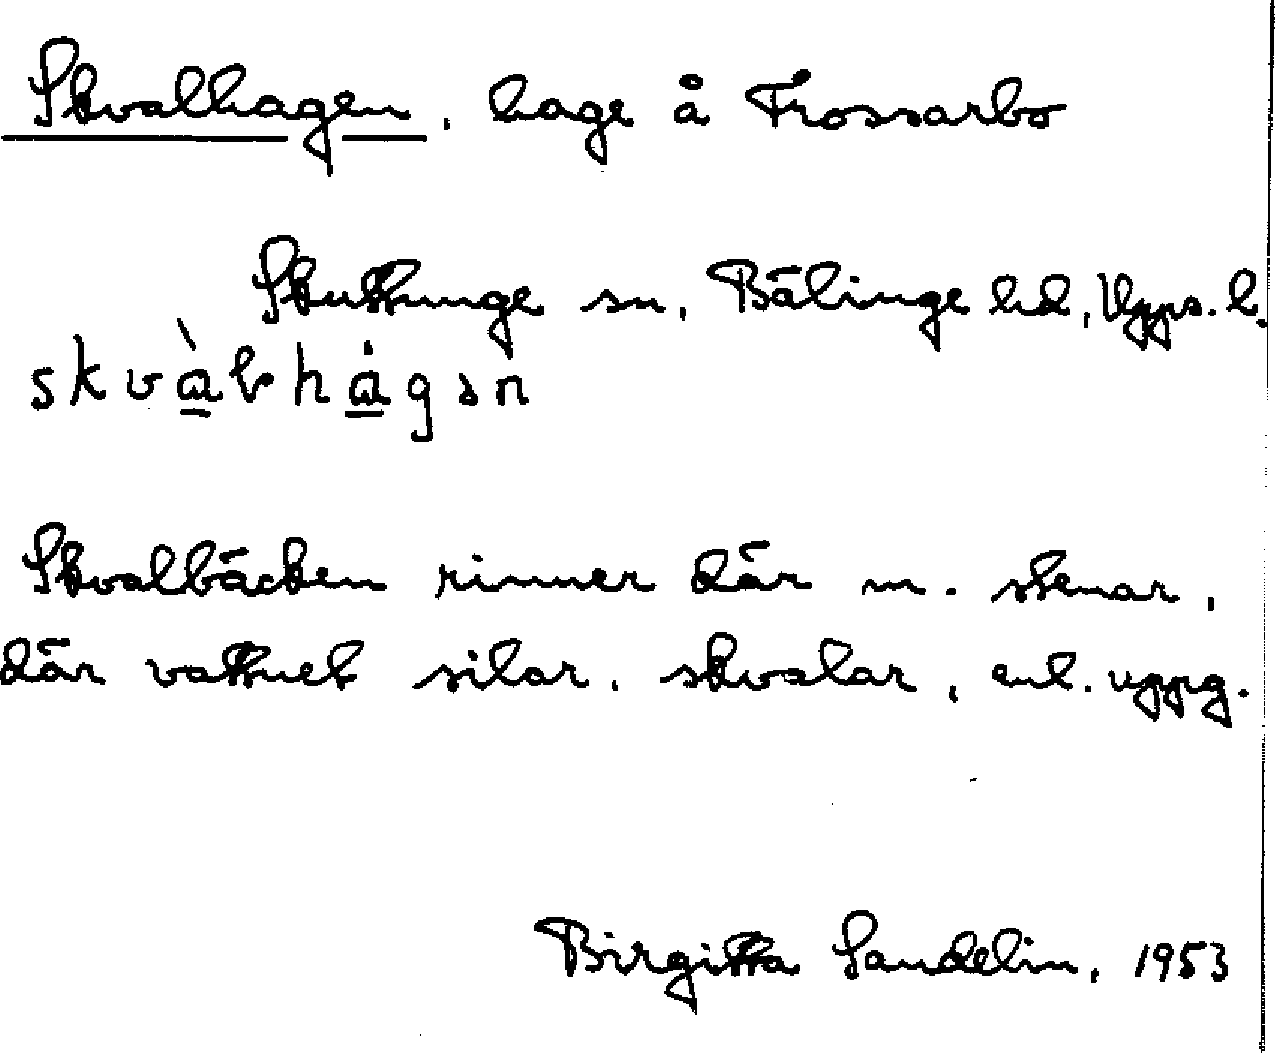 Skvalhagen, hage å Frossarbo
Skuttunge sn, Bälinge hd, Upps. l.
skvàlhágən
Skvalbäcken rinner där m. stenar,
där vattnet silar, skvalar, enl. uppg.
Birgitta Sandelin, 1953